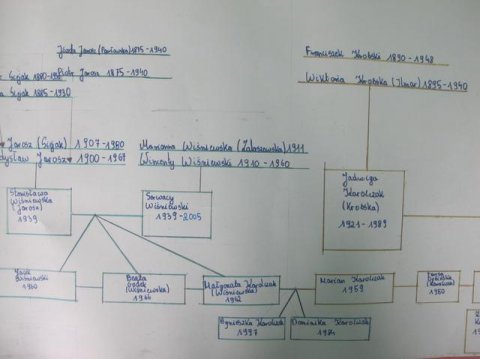 Józefa Jarosz (Pawłowska) 1875-1940
Piotr Jarosz 1875-1940
Sijak 1880-19
Sijak 1885-1930
Franciszek Krobski 1890-1948
Wiktoria Krobska (Ilnar) 1895-1940
Jarosz (Sijak) 1907-1980
dysław Jarosz 1900-1967
Marianna Wiśniewska (Zabłocka) 1911
Wincenty Wiśniewski 1910-1960
Stanisława
Wiśniewska
(Jarosz)
1939
Serwacy
Wiśniewski
1939-2005
Jadwiga
Karolczak
(Krobska)
1921-1989
1960
Beata
(Wiśniewska)
1966
Małgorzata Karolczak
(Wiśniewska)
1962
Marian Karolczak
1959
(Karolczak)
1950
Agnieszka Karolczak
1987
Dominika Karolczak
1984